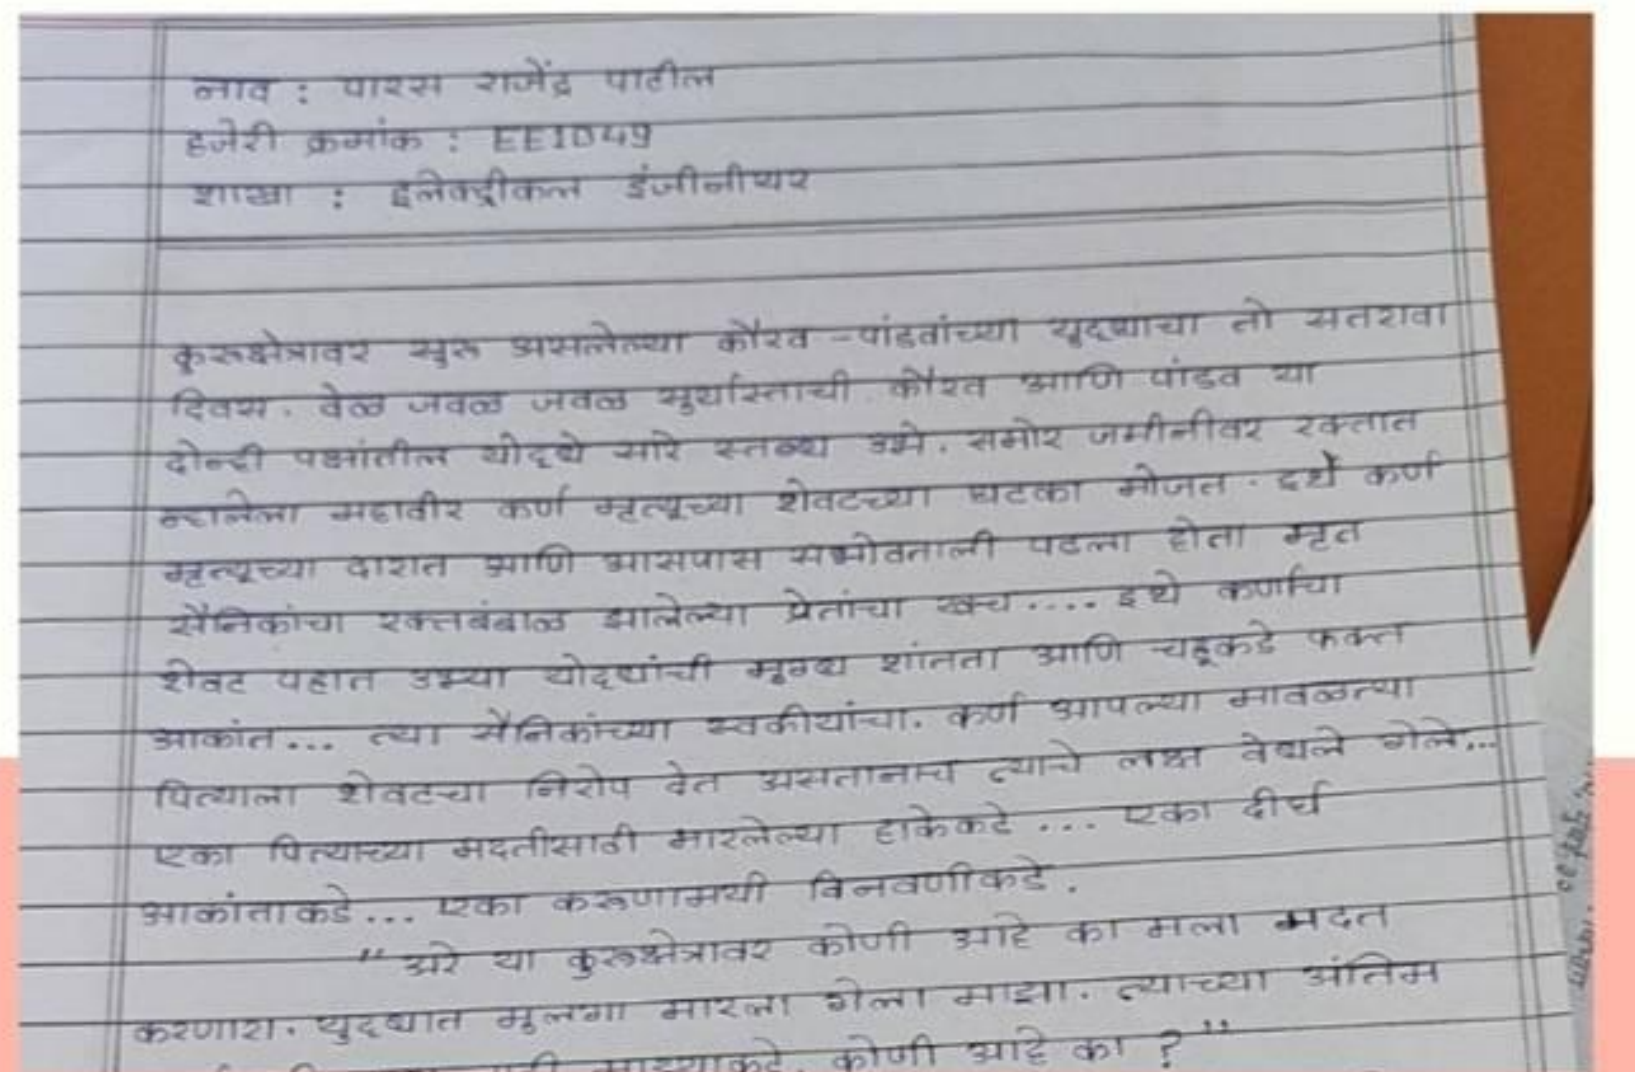 नाव : पारस राजेंद्र पाटील
हजेरी क्रमांक : EE1D49
शाखा : इलेक्ट्रीकल इंजीनीयर
कुरूक्षेत्रावर सुरू असलेल्या कौरव -पांडवांच्या युद्धाचा तो सतरावा
दिवस. वेळ जवळ जवळ सुर्यास्ताची. कौरव आणि पांडव या
दोन्ही पक्षांतील योद्धे सारे स्तब्ध उभे. समोर जमीनीवर रक्तात
न्हालेला महावीर कर्ण मृत्यूच्या शेवटच्या घटका मोजत. इथे कर्ण
मृत्यूच्या दारात आणि आसपास सभोवताली पडला होता मृत
सैनिकांचा रक्तबंबाळ झालेल्या प्रेतांचा खच.... इथे कर्णाचा
शेवट पहात उभ्या योद्धांची मुग्ध शांतता आणि चहूकडे फक्त
आकांत... त्या सैनिकांच्या स्वकीयांचा. कर्ण आपल्या मावळत्या
पित्याला शेवटचा निरोप देत असतानाच त्याचे लक्ष वेधले गेले...
एका पित्याच्या मदतीसाठी मारलेल्या हाकेकडे ... एका दीर्घ
आकांताकडे... एका करूणामयी विनवणीकडे.
"अरे या कुरूक्षेत्रावर कोणी आहे का मला मदत
करणारा. युद्धात मुलगा मारला गेला माझा. त्याच्या अंतिम
माझ्याकडे. कोणी आहे का ? "